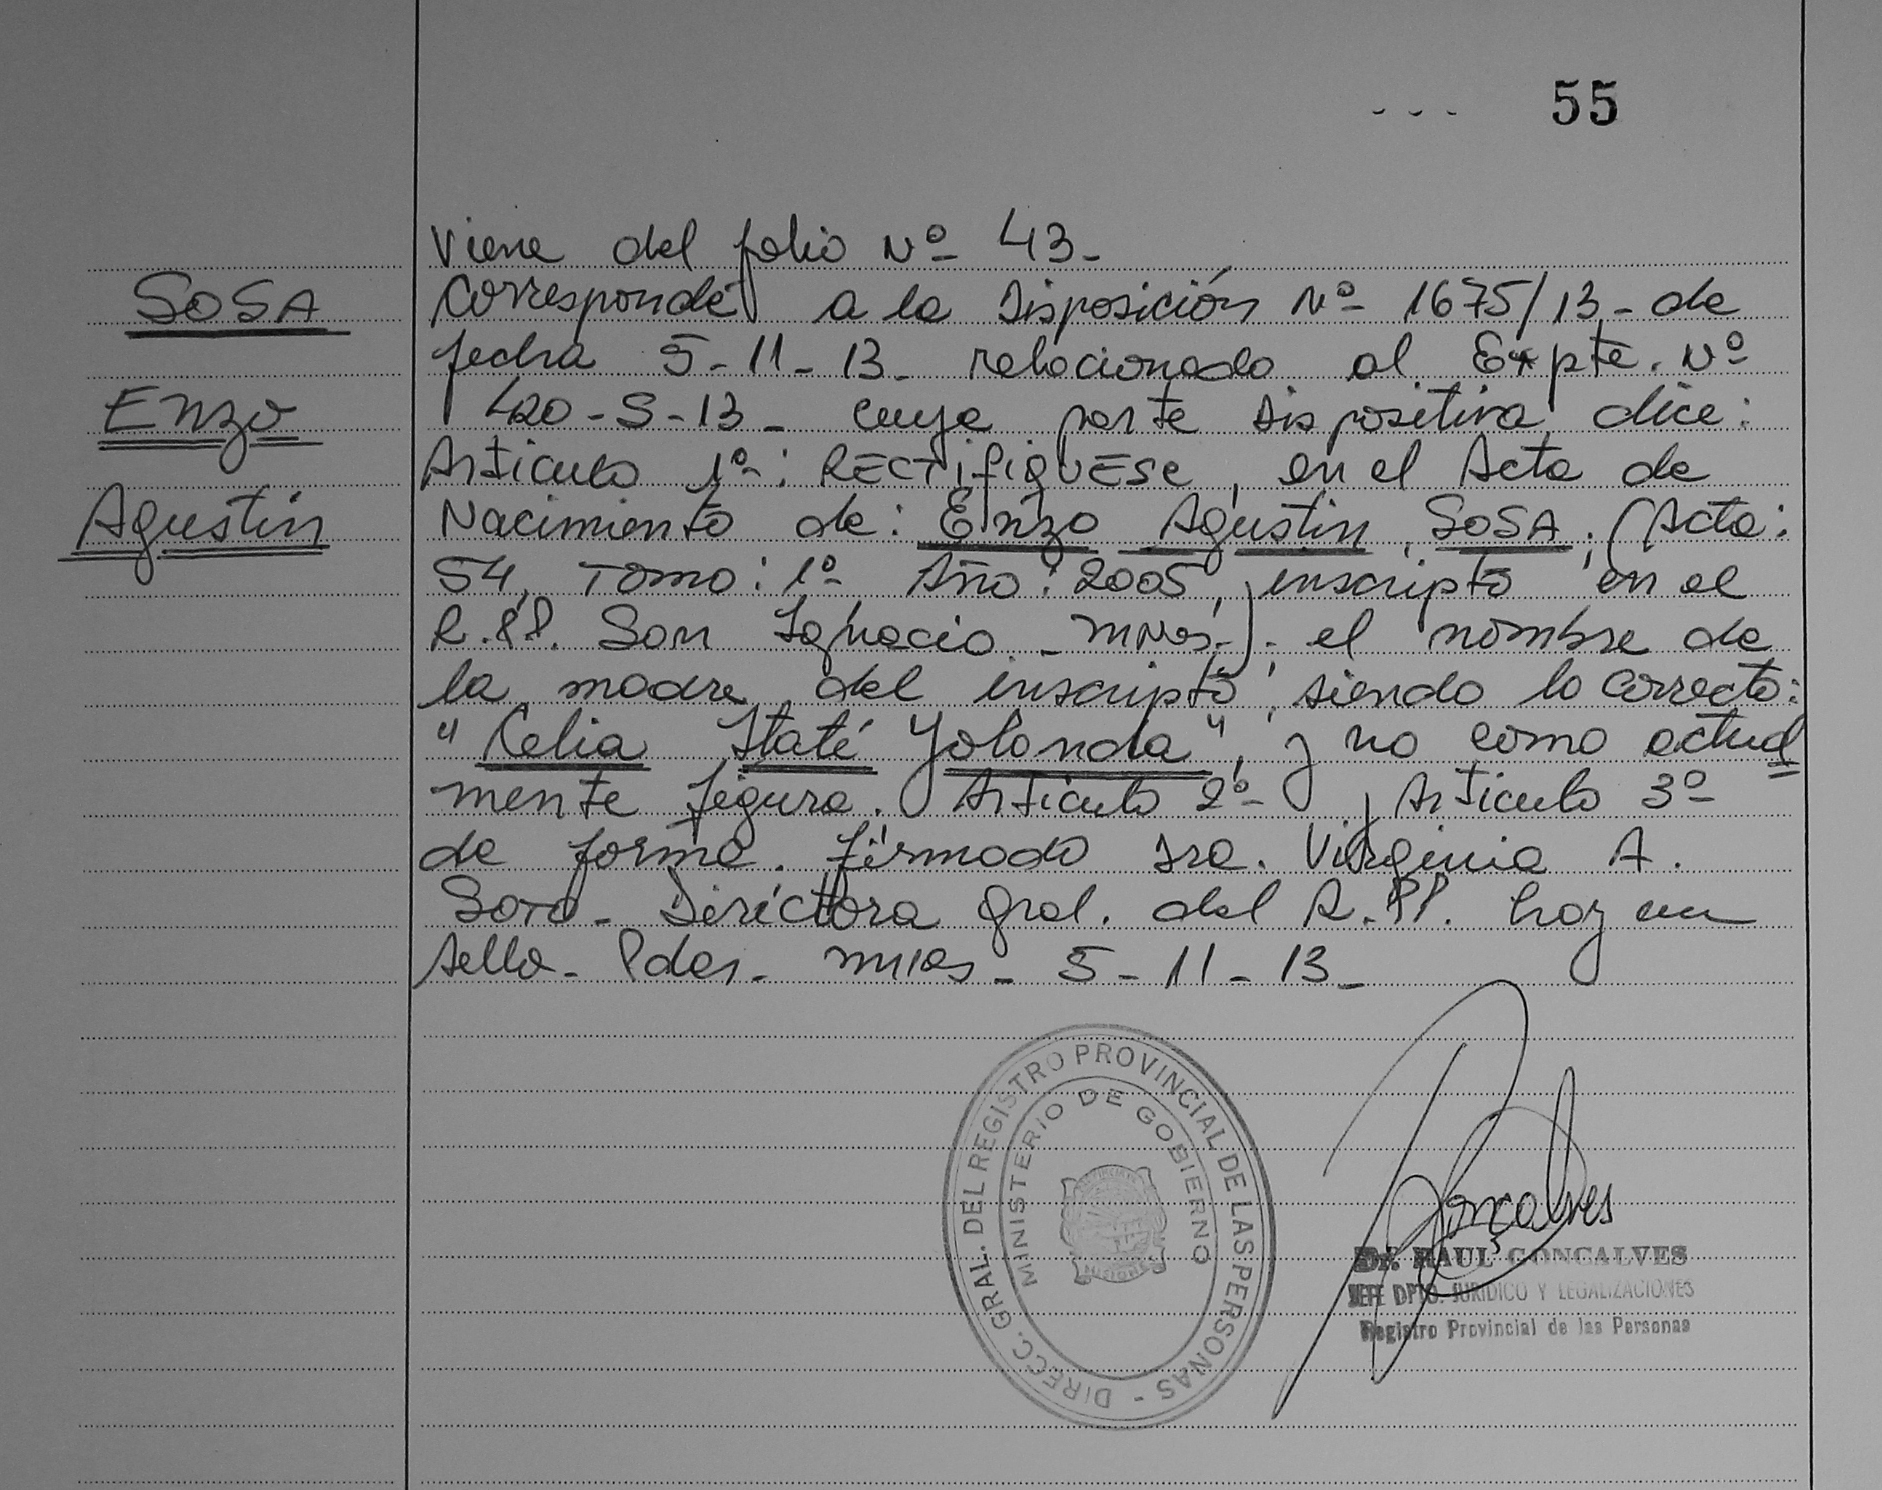 - - - 55
Viene del folio Nº 43-
SOSA
Corresponde a la Disposición Nº 1675/13- de
fecha 5-11-13- relacionado al Expte. Nº
Enzo
420-S-13- cuya parte dispositiva dice:
Articulo 1º-: RECTIFIQUESE, en el Acta de
Agustín
Nacimiento de: Enzo Agustin SOSA. (Acta:
54, Tomo: 1º- Año: 2005, inscripto en el
R.PP. San Ignacio.- Mnes.-); el nombre de
la madre del inscripto, siendo lo correcto:
"Celia Itatí Yolanda", y no como actual
mente figura. Articulo 2º- y Articulo 3º-
de forma. Firmado Dra. Virginia A.
Soto- Directora Gral. del R.PP. hay un
sello- Pdas- Mnes- 5-11-13-
DIRECC. GRAL. DEL REGISTRO PROVINCIAL DE LAS PERSONAS -
MINISTERIO DE GOBIERNO
MISIONES
Gonçalves
Dr. RAUL GONCALVES
JEFE DPTO. JURIDICO Y LEGALIZACIONES
Registro Provincial de las Personas